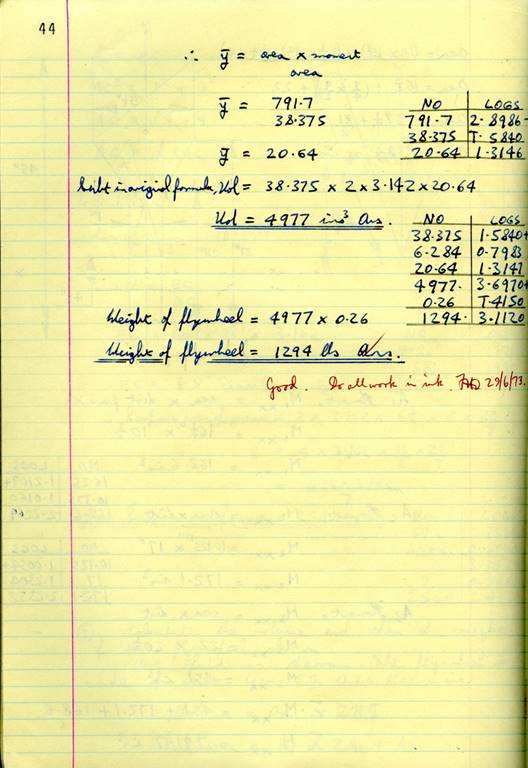 44
∴ ȳ = area × moment
area
ȳ = 791.7
38.375
NO LOGS
791.7 2.8986-
38.375 1.5840
ȳ = 20.64
20.64 1.3146
Subt in original formula, Vol = 38.375 × 2 × 3.142 × 20.64
Vol = 4977 ins³ Ans.
NO LOGS
38.375 1.5840+
6.284 0.7983
20.64 1.3147
4977. 3.6970+
0.26 T.4150
1294. 3.1120
Weight of flywheel = 4977 × 0.26
Weight of flywheel = 1294 lbs Ans.
Good. Do all work in ink. 29/6/73.